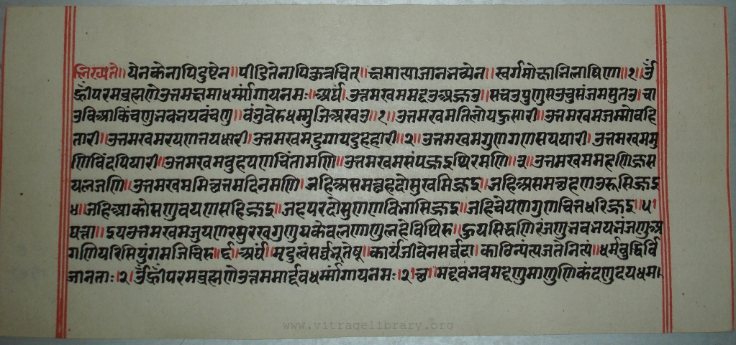 लिख्यते॥ येनकेनापिदुष्टेन॥ पीडितेनापिकुत्रचित्॥ क्षमात्याज्यानभव्येन॥ स्वर्गमोक्षाभिलाषिणा॥१॥ उँ
ह्रीँपरमब्रह्मणेउत्तमक्षमाधर्म्मांगायनमः॥अर्घ॥ उत्तमखममद्दउअज्जउ॥ सच्चउपुणुसउच्चुसंजमसुतउ॥ चा
उविआकिंचणुभवभयवंचणु॥ बंभुचेरुधम्मुजिअखउ॥१॥ उत्तमखमतिलोयहसारी॥ उत्तमखमजम्मोवहि
तारी॥ उत्तमखमरयणत्तयधारी॥ उत्तमखमदुग्गयदुहहारी॥२॥ उत्तमखमगुणगणसयारी॥ उत्तमखममु
णिविंदपियारी॥ उत्तमखमबुहयणचिंतामणि॥ उत्तमखमसंपज्जइथिरमणि॥३॥ उत्तमखममहणिज्जस
यलजणि॥ उत्तमखममिच्छत्ततमदिनमणि॥ जहिअसमच्छहदोसुखमिज्जइ॥जहिअसमच्छहणउरूसिज्जइ
४॥जहिआकोसणुवयणसहिज्जइ॥ जहपरदोसुणजणभासिज्जइ॥ जहिचेयणगुणचित्तधरिज्जइ॥५॥
घत्ता॥ इयउत्तमखमजुयणरसुरखगणुयकेवलणाणुलहेविथिरु॥ हुयसिद्धणिरंजणुभवभयभंजणुअ
गणियरिसिपुंगमजिचिरु॥ ह्रीँ॥अर्घ॥ मृदुत्वंसर्वभूतेषु॥ कार्यंजीवेनसर्वदा॥ काठिन्यंत्यजतेनित्यं॥ धर्मबुद्धिवि
जानता॥२॥ उँह्रीँपरमब्रह्मणेउत्तममार्द्दवधर्म्मांगायनमः॥२॥ मद्दवभवमद्दणुमाणुणिकंदणुदयधम्म
www.vitragelibrary.org